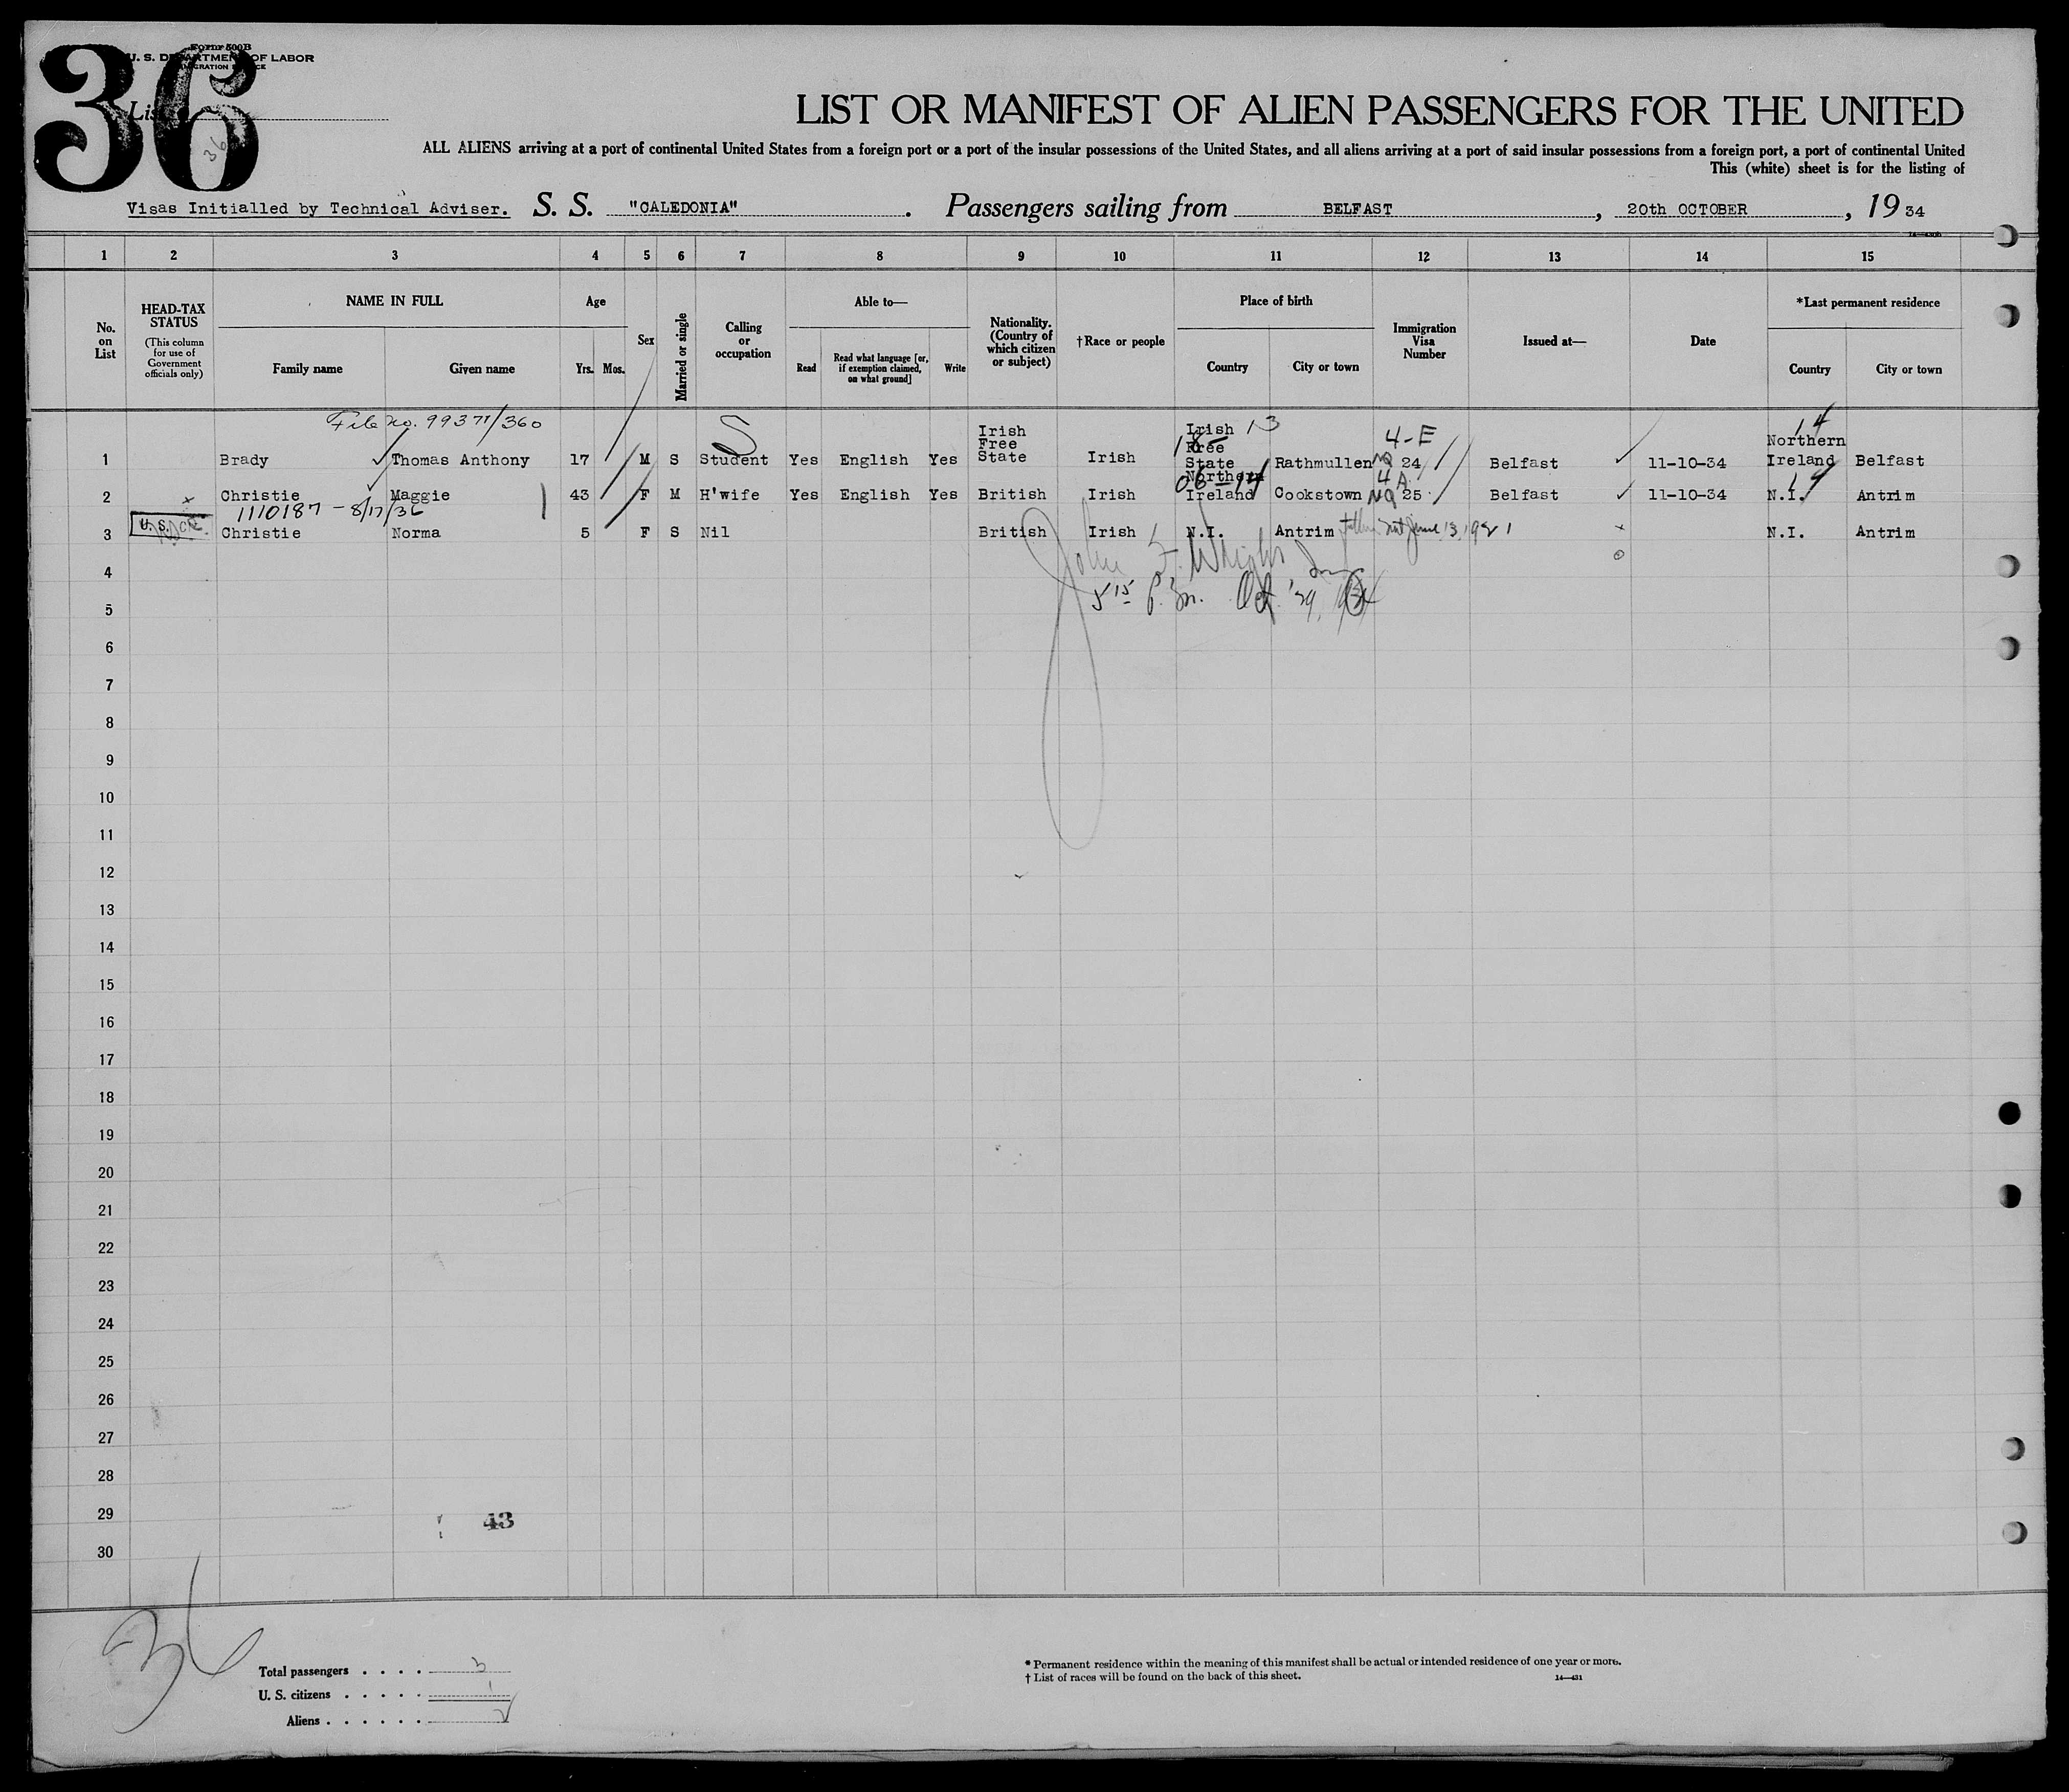 36
Form 500B
U. S. DEPARTMENT OF LABOR
IMMIGRATION SERVICE
List
36
LIST OR MANIFEST OF ALIEN PASSENGERS FOR THE UNITED
ALL ALIENS arriving at a port of continental United States from a foreign port or a port of the insular possessions of the United States, and all aliens arriving at a port of said insular possessions from a foreign port, a port of continental United
This (white) sheet is for the listing of
Visas Initialled by Technical Adviser. S. S. "CALEDONIA". Passengers sailing from BELFAST, 20th OCTOBER, 19 34
1 2 3 4 5 6 7 8 9 10 11 12 13 14 15
No. on List
HEAD-TAX STATUS
(This column for use of Government officials only)
NAME IN FULL
Family name Given name
Age
Yrs. Mos.
Sex
Married or single
Calling or occupation
Able to—
Read
Read what language [or, if exemption claimed, on what ground]
Write
Nationality. (Country of which citizen or subject)
†Race or people
Place of birth
Country City or town
Immigration Visa Number
Issued at—
Date
*Last permanent residence
Country City or town
File no. 99371/360
1 Brady Thomas Anthony 17 M S Student Yes English Yes Irish Free State Irish Irish Free State Rathmullen 24 Belfast 11-10-34 Northern Ireland Belfast
S 13 4-E 14
2 Christie Maggie 43 F M H'wife Yes English Yes British Irish Northern Ireland Cookstown NQ 25 Belfast 11-10-34 N.I. Antrim
1110187 - 8/17/36
06-14 4 A 14
3 U. S. Christie Norma 5 F S Nil British Irish N.I. Antrim June 13, 1921 N.I. Antrim
John F. Wright
4
5 15 P.M. Oct. 29, 1934
5
6
7
8
9
10
11
12
13
14
15
16
17
18
19
20
21
22
23
24
25
26
27
28
29 43
30
36
Total passengers . . . . 3
U. S. citizens . . . . . 1
Aliens . . . . . . 2
* Permanent residence within the meaning of this manifest shall be actual or intended residence of one year or more.
† List of races will be found on the back of this sheet.
14—431